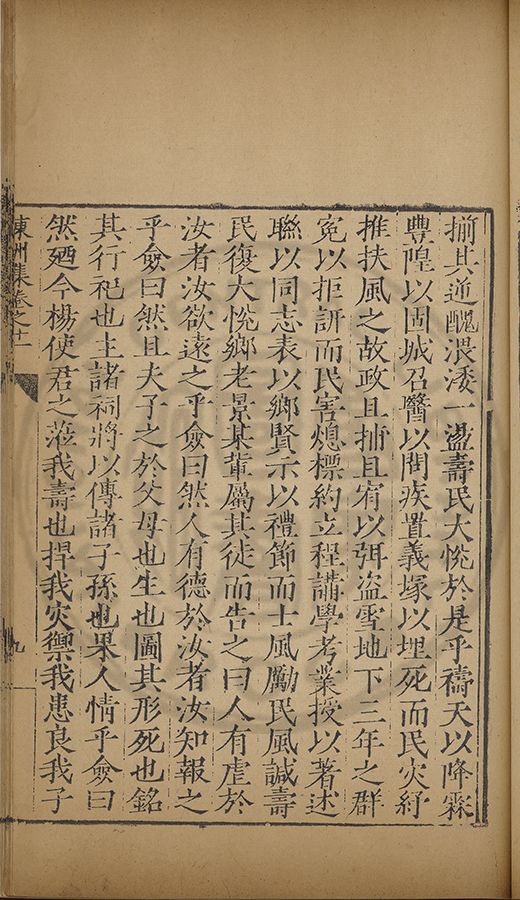 揃其逋醜淟涹一盪壽民大悅於是乎禱天以降霖
豐隍以固城召醫以問疾置義塚以埋死而民灾紓
推扶風之故政且捕且宥以弭盜雪地下三年之群
寃以拒訝而民害熄標約立程講學考業授以著述
聯以同志表以鄉賢示以禮節而士風勵民風諴壽
民復大悅鄉老景某軰屬其徒而告之曰人有虐於
汝者汝欲遠之乎僉曰然人有德於汝者汝知報之
乎僉曰然且夫子之於父母也生也圖其形死也銘
其行祀也主諸祠將以傳諸子孫也果人情乎僉曰
然廼今楊使君之蒞我壽也捍我灾禦我患良我子
東州集卷之十一
九